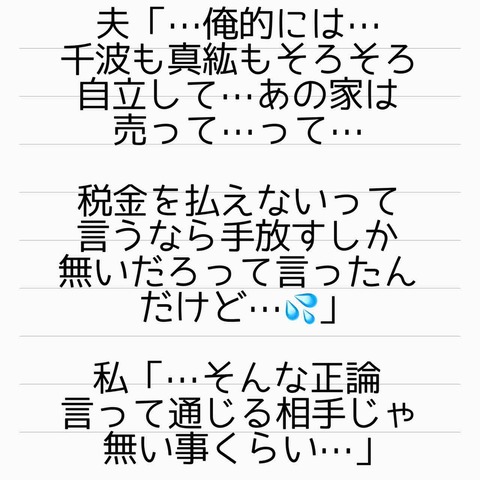 夫「…俺的には…
千波も真紘もそろそろ
自立して…あの家は
売って…って…
税金を払えないって
言うなら手放すしか
無いだろって言ったん
だけど…💦」
私「…そんな正論
言って通じる相手じゃ
無い事くらい…」